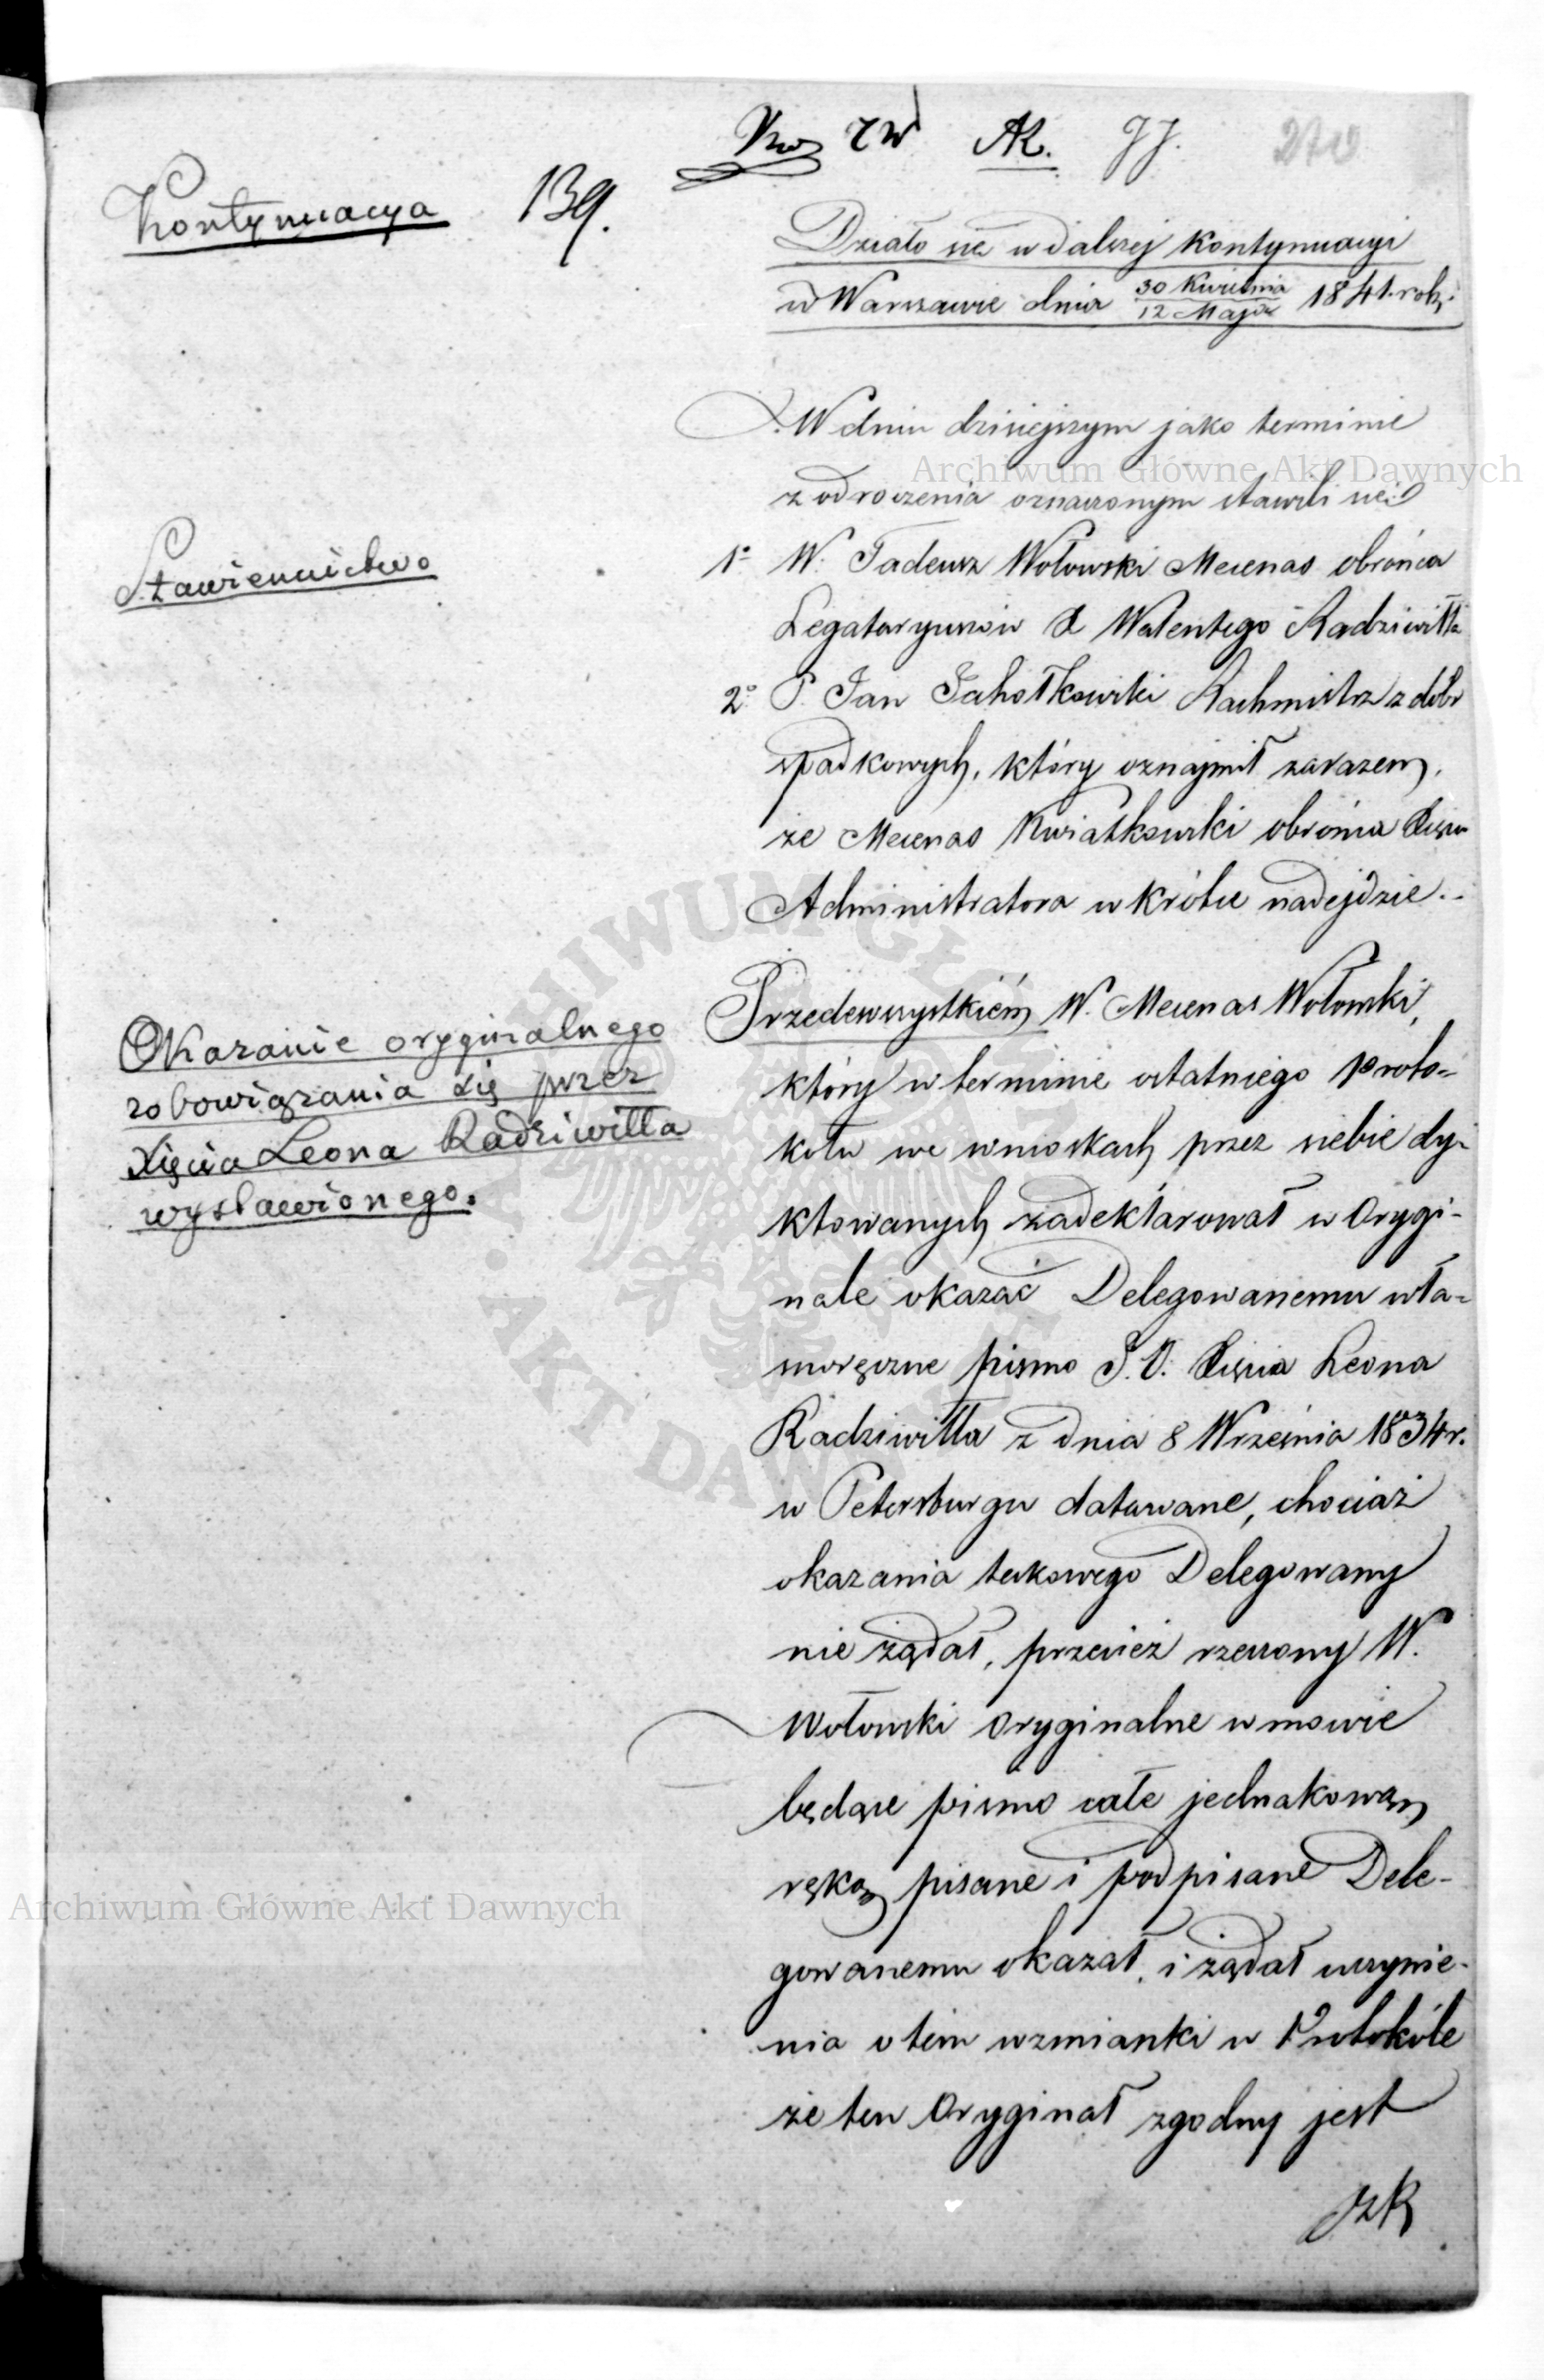 AR. JJ. 270
Kontynuacya 139.
Działo się w dalszej kontynuacyi
w Warszawie dnia 30 Kwietnia / 12 Maja 1841 roku.
W dniu dzisiejszym jako terminie
z odroczenia oznaczonym stawili się:
Stawiennictwo
1o W. Tadeusz Wołowski Mecenas obrońca
Legataryuszów X Walentego Radziwiłła
2o P. Jan Rachmistrz z dóbr
spadkowych, który oznajmił zarazem,
że Mecenas Kwiatkowski obrońca Xięcia
Administratora wkrótce nadejdzie.-
Okazanie oryginalnego
zobowiązania się przez
Xięcia Leona Radziwiłła
wystawionego.
Przedewszystkiém W. Mecenas Wołowski,
który w terminie ostatniego Proto-
kołu we wnioskach przez siebie dy-
ktowanych zadeklarował w Orygi-
nale okazać Delegowanemu wła-
snoręczne pismo J. O. Xięcia Leona
Radziwiłła z dnia 8 Września 1834 r.
w Petersburgu datowane, chociaż
okazania takowego Delegowany
nie żądał, przecież rzeczony W.
Wołowski oryginalne w mowie
będące pismo całe jednakową
ręką pisane i podpisane Dele-
gowanemu okazał, i żądał uczynie-
nia o tem wzmianki w Protokóle
że ten Oryginał zgodny jest
Archiwum Główne Akt Dawnych
Archiwum Główne Akt Dawnych
ARCHIWUM GŁÓWNE AKT DAWNYCH